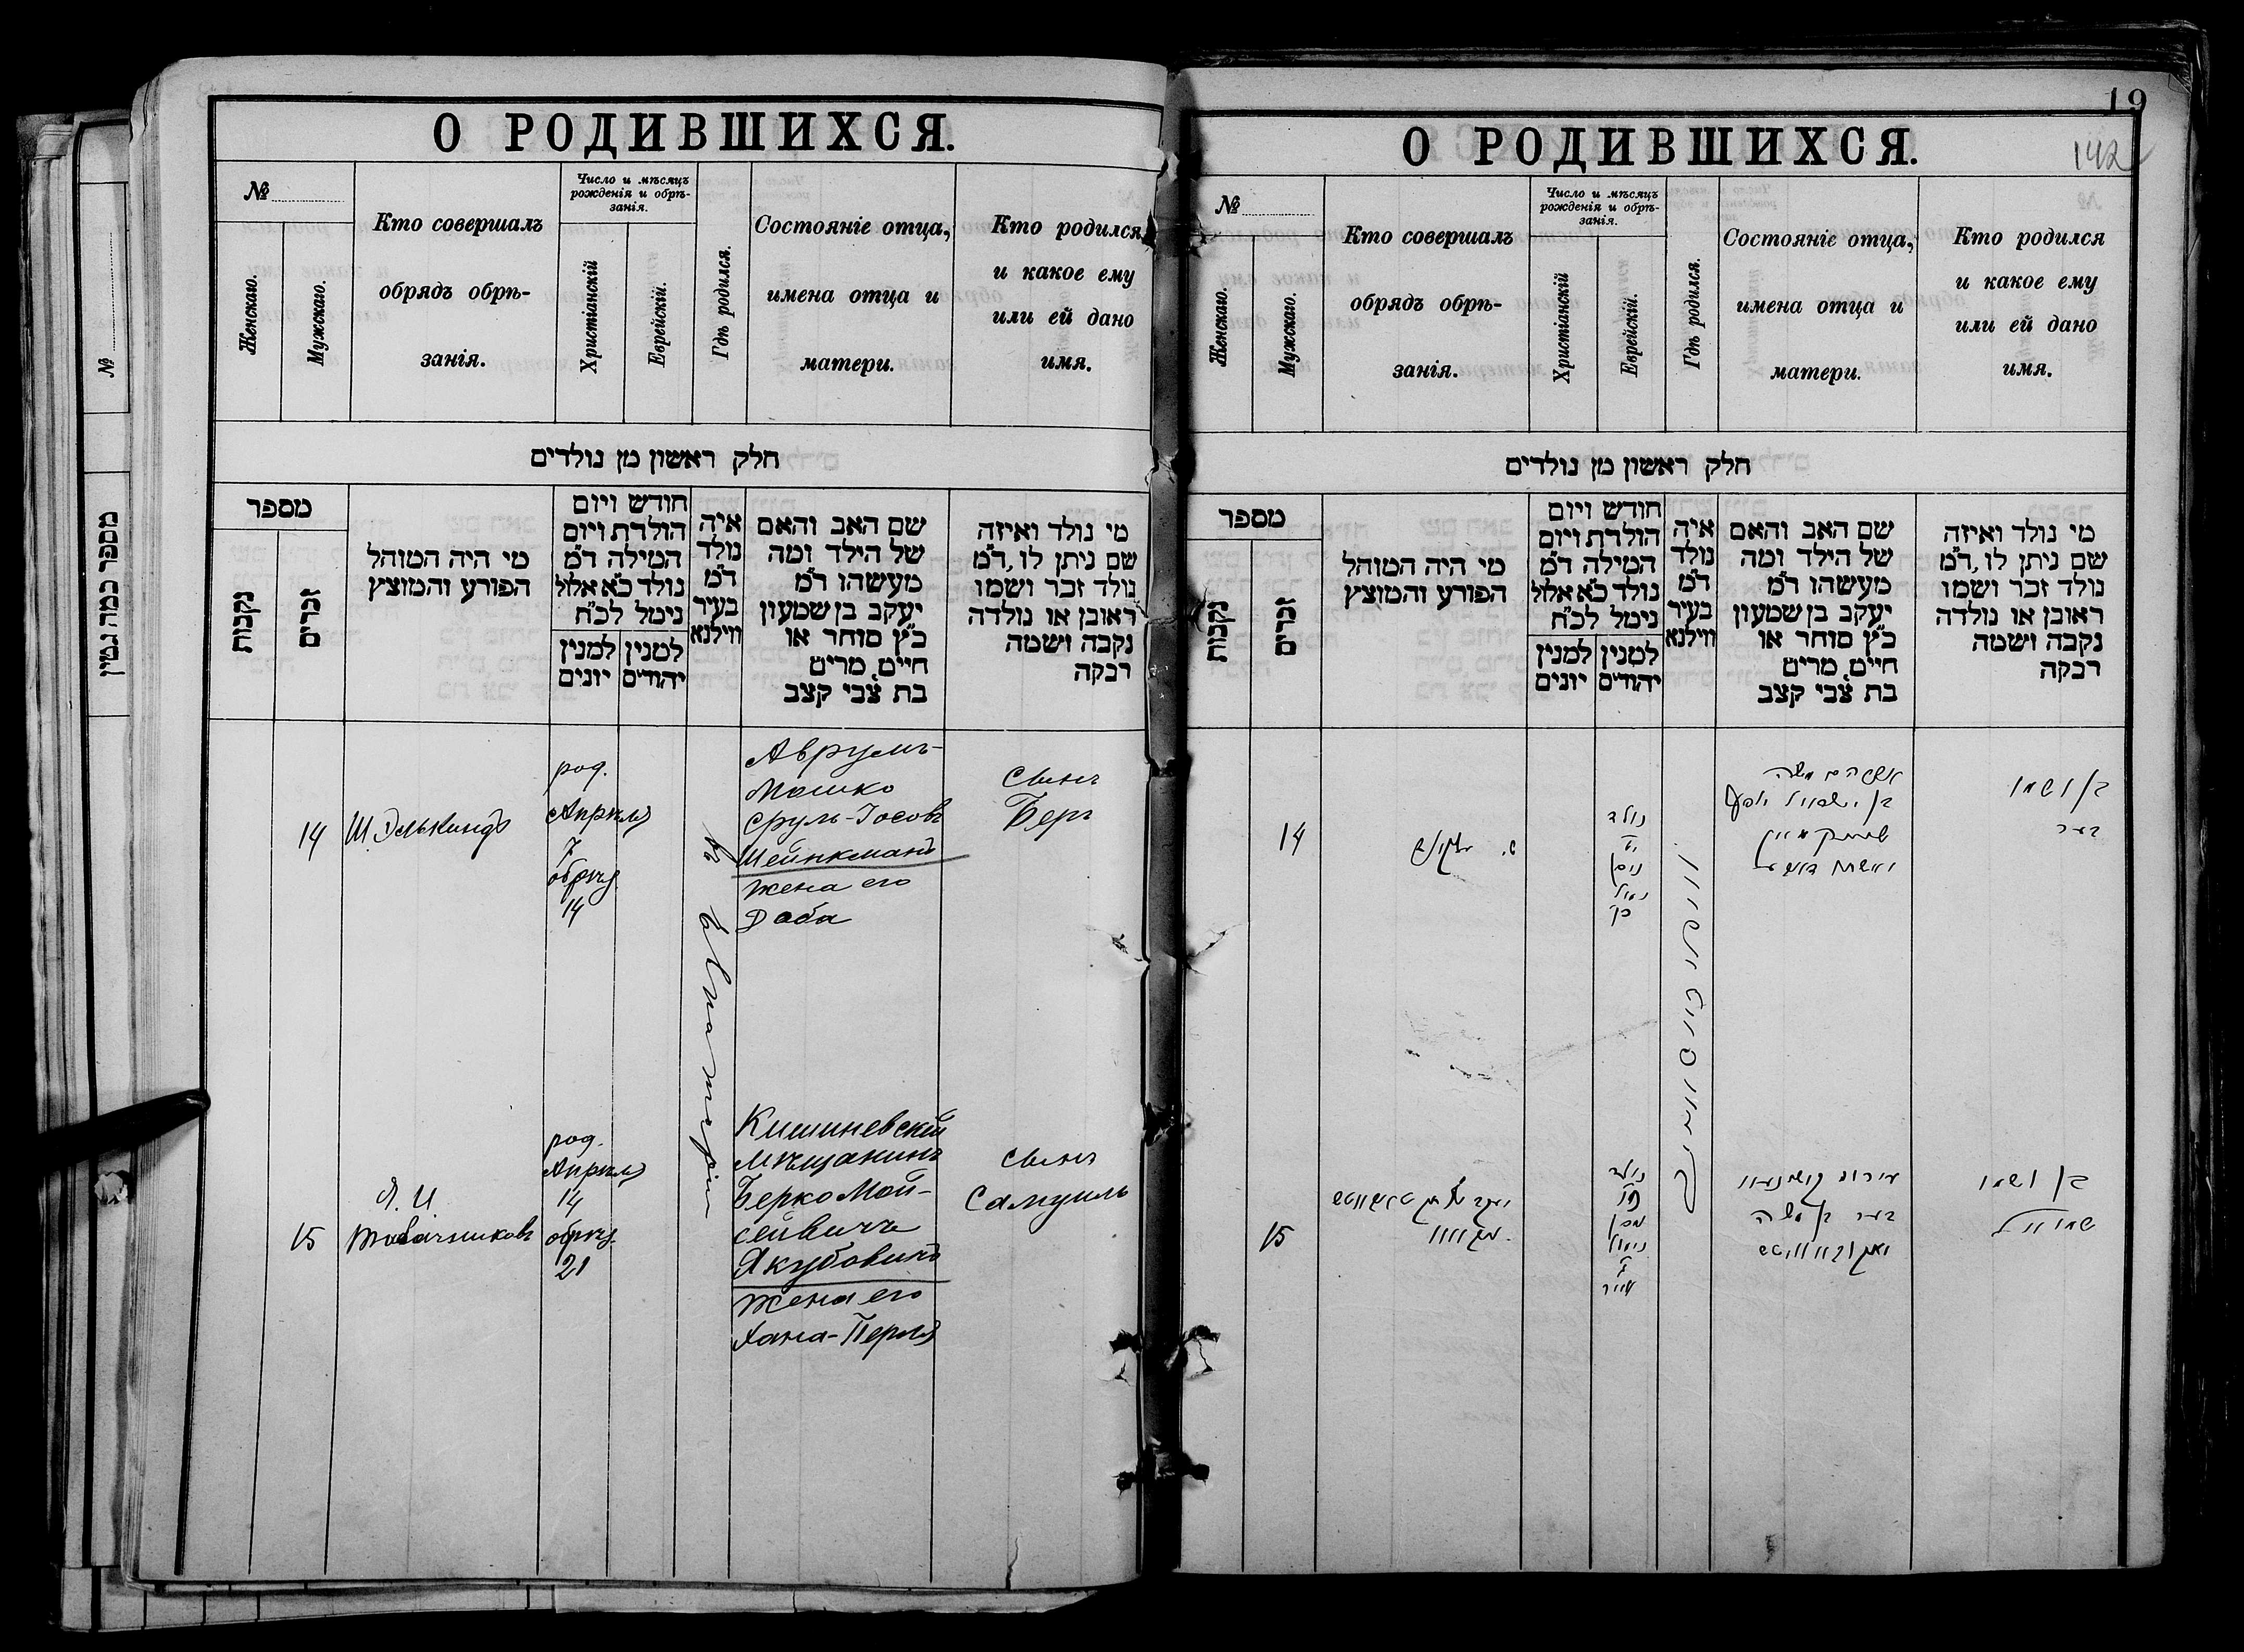 О РОДИВШИХСЯ.
№
Женскаго.
Мужскаго.
Кто совершалъ
обрядъ обрѣ-
занія.
Число и мѣсяцъ
рожденія и обрѣ-
занія.
Христіанскій
Еврейскій.
Гдѣ родился.
Состояніе отца,
имена отца и
матери.
Кто родился
и какое ему
или ей дано
имя.
חלק ראשון מן נולדים
מספר
נקבות
זכרים
מי היה המוהל
הפורע והמוצץ
חודש ויום
הולדת ויום
המילה ד"מ
נולד כ"א אלול
נימל לכ"ח
למנין
יונים
למנין
יהודים
איה
נולד
ד"מ
בעיר
ווילנא
שם האב והאם
של הילד ומה
מעשהו ד"מ
יעקב בן שמעון
כ"ץ סוחר או
חייט, מרים
בת צבי קצב
מי נולד ואיזה
שם ניתן לו, ד"מ
נולד זכר ושמו
ראובן או נולדה
נקבה ושמה
רבקה
14
Ш. Элькиндъ
род.
Апрѣля
7
обрѣз.
14
Аврумъ-
Мошко
Сруль-Іосовъ
Шейнкманъ
жена его
Доба
сынъ
Беръ
15
Я. И.
Товачниковъ
род.
Апрѣля
14
обрѣз.
21
Кишиневскій
мѣщанинъ
Берко Мой-
сеевичъ
Якубовичъ
жена его
Хана-Перля
сынъ
Самуилъ
19
142
О РОДИВШИХСЯ.
№
Женскаго.
Мужскаго.
Кто совершалъ
обрядъ обрѣ-
занія.
Число и мѣсяцъ
рожденія и обрѣ-
занія.
Христіанскій
Еврейскій.
Гдѣ родился.
Состояніе отца,
имена отца и
матери.
Кто родился
и какое ему
или ей дано
имя.
חלק ראשון מן נולדים
מספר
נקבות
זכרים
מי היה המוהל
הפורע והמוצץ
חודש ויום
הולדת ויום
המילה ד"מ
נולד כ"א אלול
נימל לכ"ח
למנין
יונים
למנין
יהודים
איה
נולד
ד"מ
בעיר
ווילנא
שם האב והאם
של הילד ומה
מעשהו ד"מ
יעקב בן שמעון
כ"ץ סוחר או
חייט, מרים
בת צבי קצב
מי נולד ואיזה
שם ניתן לו, ד"מ
נולד זכר ושמו
ראובן או נולדה
נקבה ושמה
רבקה
14
נולד
ניסן
נימול
בן ושמו
בער
15
נולד
ניסן
נימול
אייר
בער בן משה
בן ושמו
שמואל
№
מספר כמה גטין